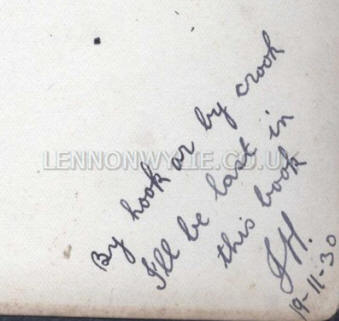 By hook or by crook
I'll be last in
this book
JH.
19-11-30
LENNONWYLIE.CO.UK